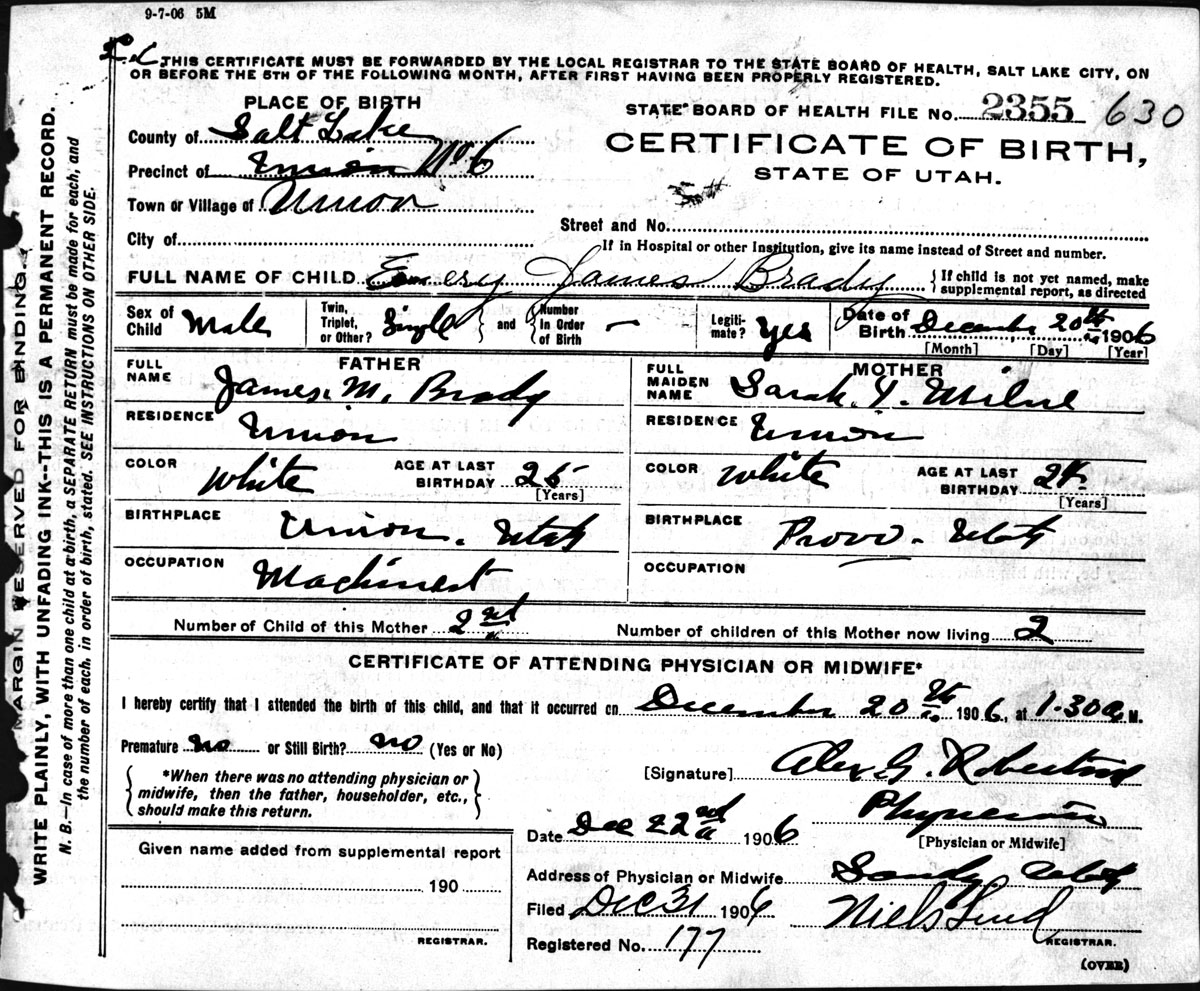 9-7-06 5M
THIS CERTIFICATE MUST BE FORWARDED BY THE LOCAL REGISTRAR TO THE STATE BOARD OF HEALTH, SALT LAKE CITY, ON
OR BEFORE THE 5TH OF THE FOLLOWING MONTH, AFTER FIRST HAVING BEEN PROPERLY REGISTERED.
MARGIN RESERVED FOR BINDING.
WRITE PLAINLY, WITH UNFADING INK--THIS IS A PERMANENT RECORD.
N. B.—In case of more than one child at a birth, a SEPARATE RETURN must be made for each, and
the number of each, in order of birth, stated. SEE INSTRUCTIONS ON OTHER SIDE.
PLACE OF BIRTH
STATE BOARD OF HEALTH FILE No. 2355 630
County of Salt Lake
CERTIFICATE OF BIRTH,
Precinct of Union No 6
STATE OF UTAH.
Town or Village of Union
Street and No.
City of
If in Hospital or other Institution, give its name instead of Street and number.
FULL NAME OF CHILD Emery James Brady { If child is not yet named, make
supplemental report, as directed
Sex of Child Male Twin, Triplet, or Other? Single } and { Number in Order of Birth — Legiti-mate? Yes Date of Birth December 20th 1906
[Month] [Day] [Year]
FATHER MOTHER
FULL NAME James. M. Brady FULL MAIDEN NAME Sarah. Y. Milne
RESIDENCE Union RESIDENCE Union
COLOR White AGE AT LAST BIRTHDAY 25 [Years] COLOR White AGE AT LAST BIRTHDAY 24 [Years]
BIRTHPLACE Union. Utah BIRTHPLACE Provo. Utah
OCCUPATION Machinest OCCUPATION
Number of Child of this Mother 2nd Number of children of this Mother now living 2
CERTIFICATE OF ATTENDING PHYSICIAN OR MIDWIFE*
I hereby certify that I attended the birth of this child, and that it occurred on December 20th 1906, at 1-30 a. M.
Premature no or Still Birth? no (Yes or No)
*When there was no attending physician or
midwife, then the father, householder, etc.,
should make this return.
[Signature] Alex G. Robertson
Physician
[Physician or Midwife]
Date Dec 22nd 1906
Given name added from supplemental report
190
REGISTRAR.
Address of Physician or Midwife Sandy Utah
Filed Dec 31 1906 Niels Lind
REGISTRAR.
Registered No. 177
(OVER)